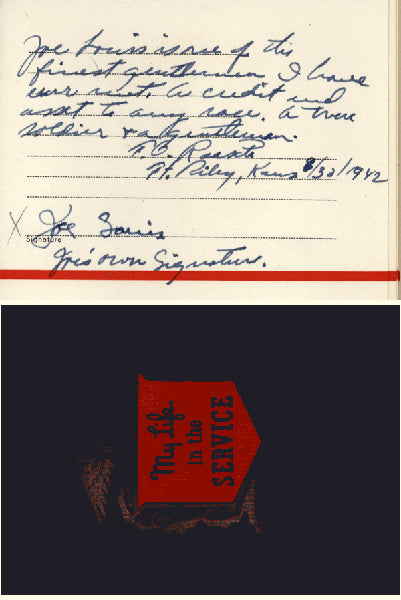 Joe Louis is one of the
finest gentlemen I have
ever met. A credit and
asset to any race. A true
soldier & a gentleman.
Ft. Riley, Kans 8/30/1942
X Joe Louis
Signature
Joe's own Signature.
My Life
in the
SERVICE